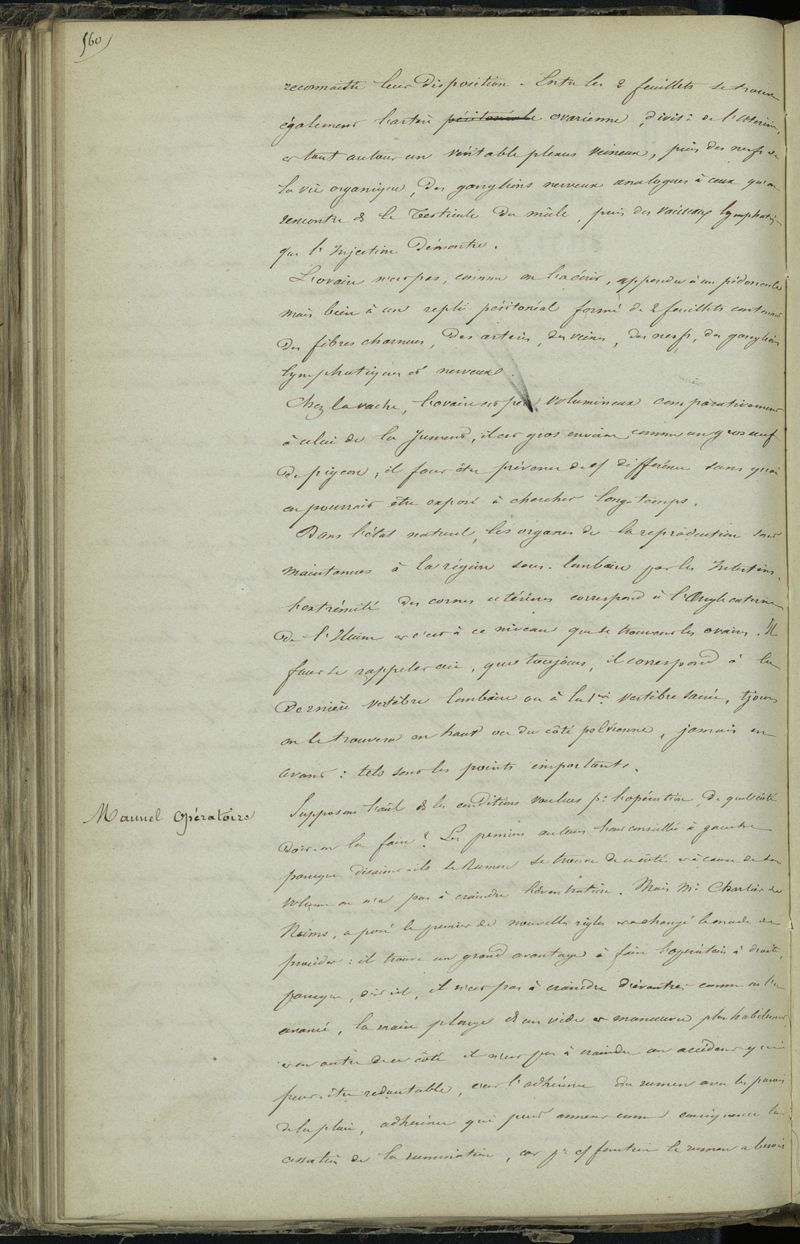 560
reconnaître leur disposition. Entre les 2 feuillets se trouve
également l'artère péritonéale ovarienne, divis: de l'utérine,
et tout autour un véritable plexus veineux, puis des nerfs de
la vie organique, des ganglions nerveux analogues à ceux qu'on
rencontre ds le testicule du mâle, puis des vaisseaux lymphatiq
que l'injection démontre.
L'ovaire n'est pas, comme on l'a décrit, appendu à un pédoncule
mais bien à un repli péritonéal formé de 2 feuillets contenant
des fibres charnues, des artères, des veines, des nerfs, des ganglions
lymphatiques et nerveux.
Chez la vache, l'ovaire est peu volumineux comparativement
à celui de la jument, il est gros environ comme un gros œuf
de pigeon, il faut être prévenu de cf différence sans quoi
on pourrait être exposé à chercher longtemps.
Dans l'état naturel, les organes de la reproduction sont
maintenus à la région sous-lombaire par les intestins.
L'extrémité des cornes utérines correspond à l'angle externe
de l'Ilium et c'est à ce niveau que se trouvent les ovaires. Il
faut se rappeler ceci, que toujours, il correspond à la
dernière vertèbre lombaire ou à la 1ère vertèbre sacrée, tjours
on le trouvera en haut ou du côté pelvienne, jamais en
avant: tels sont les points importants.
Manuel opératoire
Supposons l'anl ds les conditions voulues pr l'opération. De quel côté
doit-on la faire? Les premiers auteurs l'ont conseillée à gauche
parceque disaient-ils le rumen se trouve de ce côté et à cause de son
volume on n'a pas à craindre l'éventration. Mais Mr Charlier de
Reims, a posé le premier de nouvelles règles et a changé le mode de
procéder: il trouve un grand avantage à faire l'opération à droite,
parceque, dit-il, il n'est pas à craindre d'éventrer comme on l'a
avancé, la main plonge ds un vide et manœuvre plus habilement
et en outre de ce côté il n'est pas à craindre un accident qui
peut être redoutable, c'est l'adhérence du rumen avec les parois
de la plaie, adhérence qui peut amener comme conséquence la
cessation de la rumination, car pr cf fonction le rumen a besoin